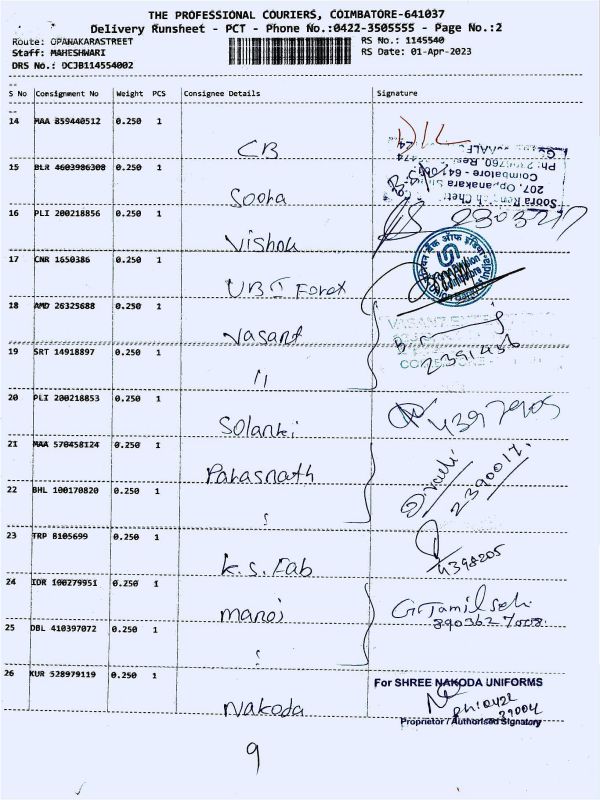 THE PROFESSIONAL COURIERS, COIMBATORE-641037
Delivery Runsheet - PCT - Phone No.:0422-3505555 - Page No.:2
Route: OPANAKARASTREET RS No.: 1145540
Staff: MAHESHWARI RS Date: 01-Apr-2023
DRS No.: DCJB114554002
S No Consignment No Weight PCS Consignee Details Signature
14 MAA 859440512 0.250 1
CB D/L
15 BLR 4603986308 0.250 1
Sooha
207, Oppanakara
Coimbatore - 641 001
16 PLI 200218856 0.250 1
Vishal
17 CNR 1650386 0.250 1
UBI Forex
18 AMD 26325688 0.250 1
Vasant
19 SRT 14918897 0.250 1
11 2391456
20 PLI 200218853 0.250 1
Solanki 4397905
21 MAA 570458124 0.250 1
Parasnath
22 BHL 100170820 0.250 1
23 TRP 8105699 0.250 1
K.S. Fab 4398205
24 IDR 100279951 0.250 1
Manoj
25 DBL 410397072 0.250 1
26 KUR 528979119 0.250 1
For SHREE NAKODA UNIFORMS
Nakoda
Proprietor / Authorised Signatory
9